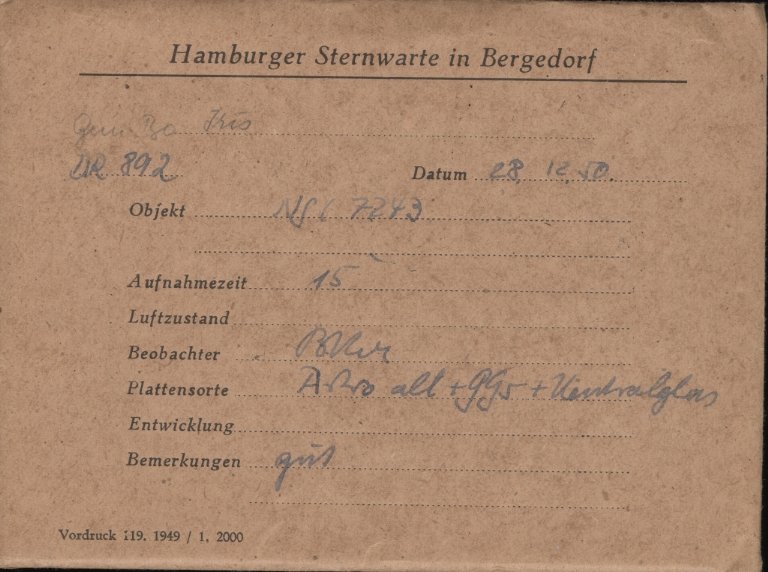 Hamburger Sternwarte in Bergedorf
Iris
892
Datum 28. 12. 50.
Objekt NGC 7243
Aufnahmezeit 15
Luftzustand
Beobachter
Plattensorte Astro alt + + Neutralglas
Entwicklung
Bemerkungen gut
Vordruck 119. 1949 / 1. 2000